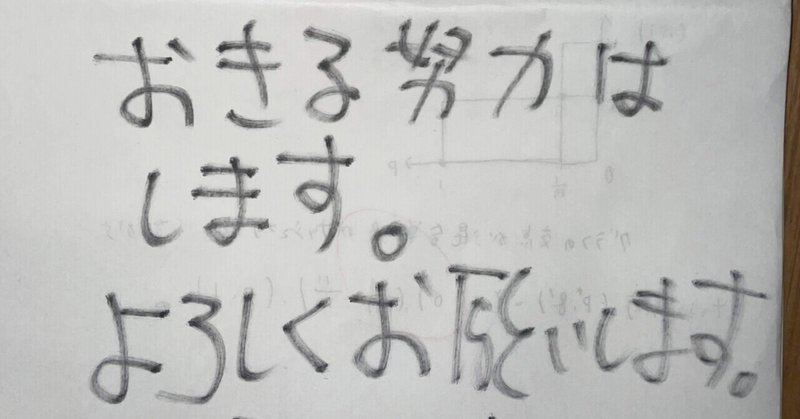 おきる努力は
します。
よろしくお願いします。